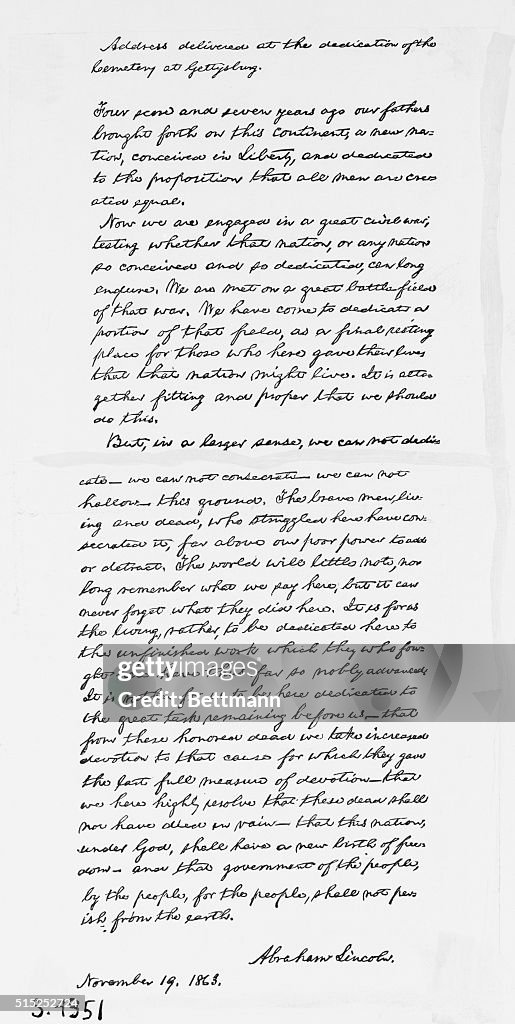 Address delivered at the dedication of the
Cemetery at Gettysburg.
Four score and seven years ago our fathers
brought forth on this continent, a new na-
tion, conceived in Liberty, and dedicated
to the proposition that all men are cre-
ated equal.
Now we are engaged in a great civil war,
testing whether that nation, or any nation
so conceived and so dedicated, can long
endure. We are met on a great battle-field
of that war. We have come to dedicate a
portion of that field, as a final resting
place for those who here gave their lives
that that nation might live. It is alto-
gether fitting and proper that we should
do this.
But, in a larger sense, we can not dedi-
cate— we can not consecrate— we can not
hallow— this ground. The brave men, liv-
ing and dead, who struggled here have con-
secrated it, far above our poor power to add
or detract. The world will little note, nor
long remember what we say here, but it can
never forget what they did here. It is for us
the living, rather, to be dedicated here to
the unfinished work which they who fou-
ght here have thus far so nobly advanced.
It is rather for us to be here dedicated to
the great task remaining before us— that
from these honored dead we take increased
devotion to that cause for which they gave
the last full measure of devotion— that
we here highly resolve that these dead shall
not have died in vain— that this nation,
under God, shall have a new birth of free-
dom— and that government of the people,
by the people, for the people, shall not per-
ish from the earth.
Abraham Lincoln.
November 19. 1863.
gettyimages
Credit: Bettmann
515252724
S.1351